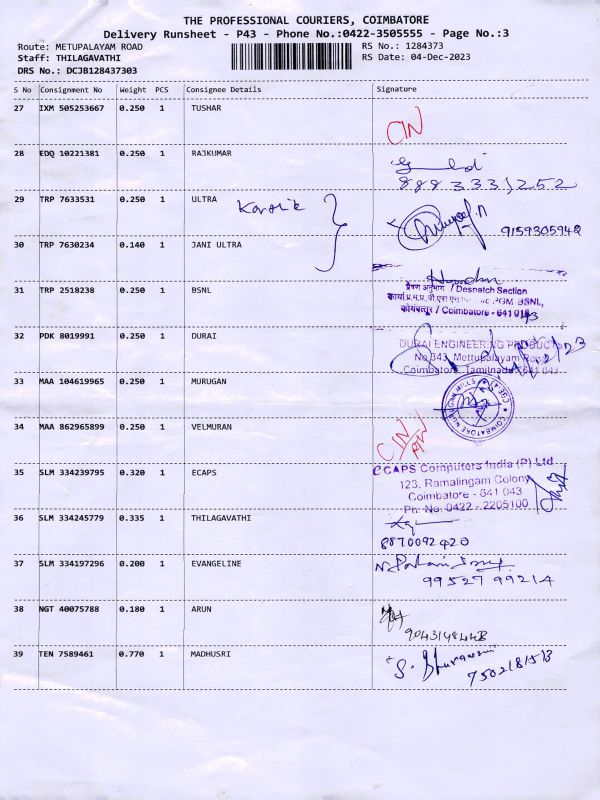 THE PROFESSIONAL COURIERS, COIMBATORE
Delivery Runsheet - P43 - Phone No.:0422-3505555 - Page No.:3
Route: METUPALAYAM ROAD
RS No.: 1284373
Staff: THILAGAVATHI
RS Date: 04-Dec-2023
DRS No.: DCJB128437303
S No Consignment No Weight PCS Consignee Details Signature
27 IXM 505253667 0.250 1 TUSHAR
CIN
28 EDQ 10221381 0.250 1 RAJKUMAR
29 TRP 7633531 0.250 1 ULTRA
Karthik
9159305942
30 TRP 7630234 0.140 1 JANI ULTRA
31 TRP 2518238 0.250 1 BSNL
प्रेषण अनुभाग / Despatch Section
PGM BSNL,
कोयंबत्तूर / Coimbatore - 641 043
32 PDK 8019991 0.250 1 DURAI
DURAI ENGINEERING PRODUCTS
No.343, Mettupalayam Road
Coimbatore, Tamilnadu - 641 043
33 MAA 104619965 0.250 1 MURUGAN
COIMBATORE MURUGAN MILLS
34 MAA 862965899 0.250 1 VELMURAN
CIN
35 SLM 334239795 0.320 1 ECAPS
ECAPS Computers India (P) Ltd
123, Ramalingam Colony
Coimbatore - 641 043
Ph: No: 0422 - 2205100
36 SLM 334245779 0.335 1 THILAGAVATHI
8870092420
37 SLM 334197296 0.200 1 EVANGELINE
99527 99214
38 NGT 40075788 0.180 1 ARUN
39 TEN 7589461 0.770 1 MADHUSRI
7502181513